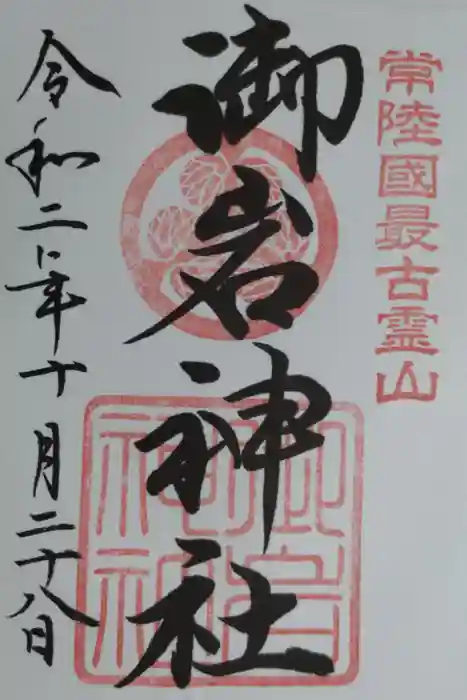 常陸國最古霊山
御岩神社
令和二年十月二十八日
御岩神社